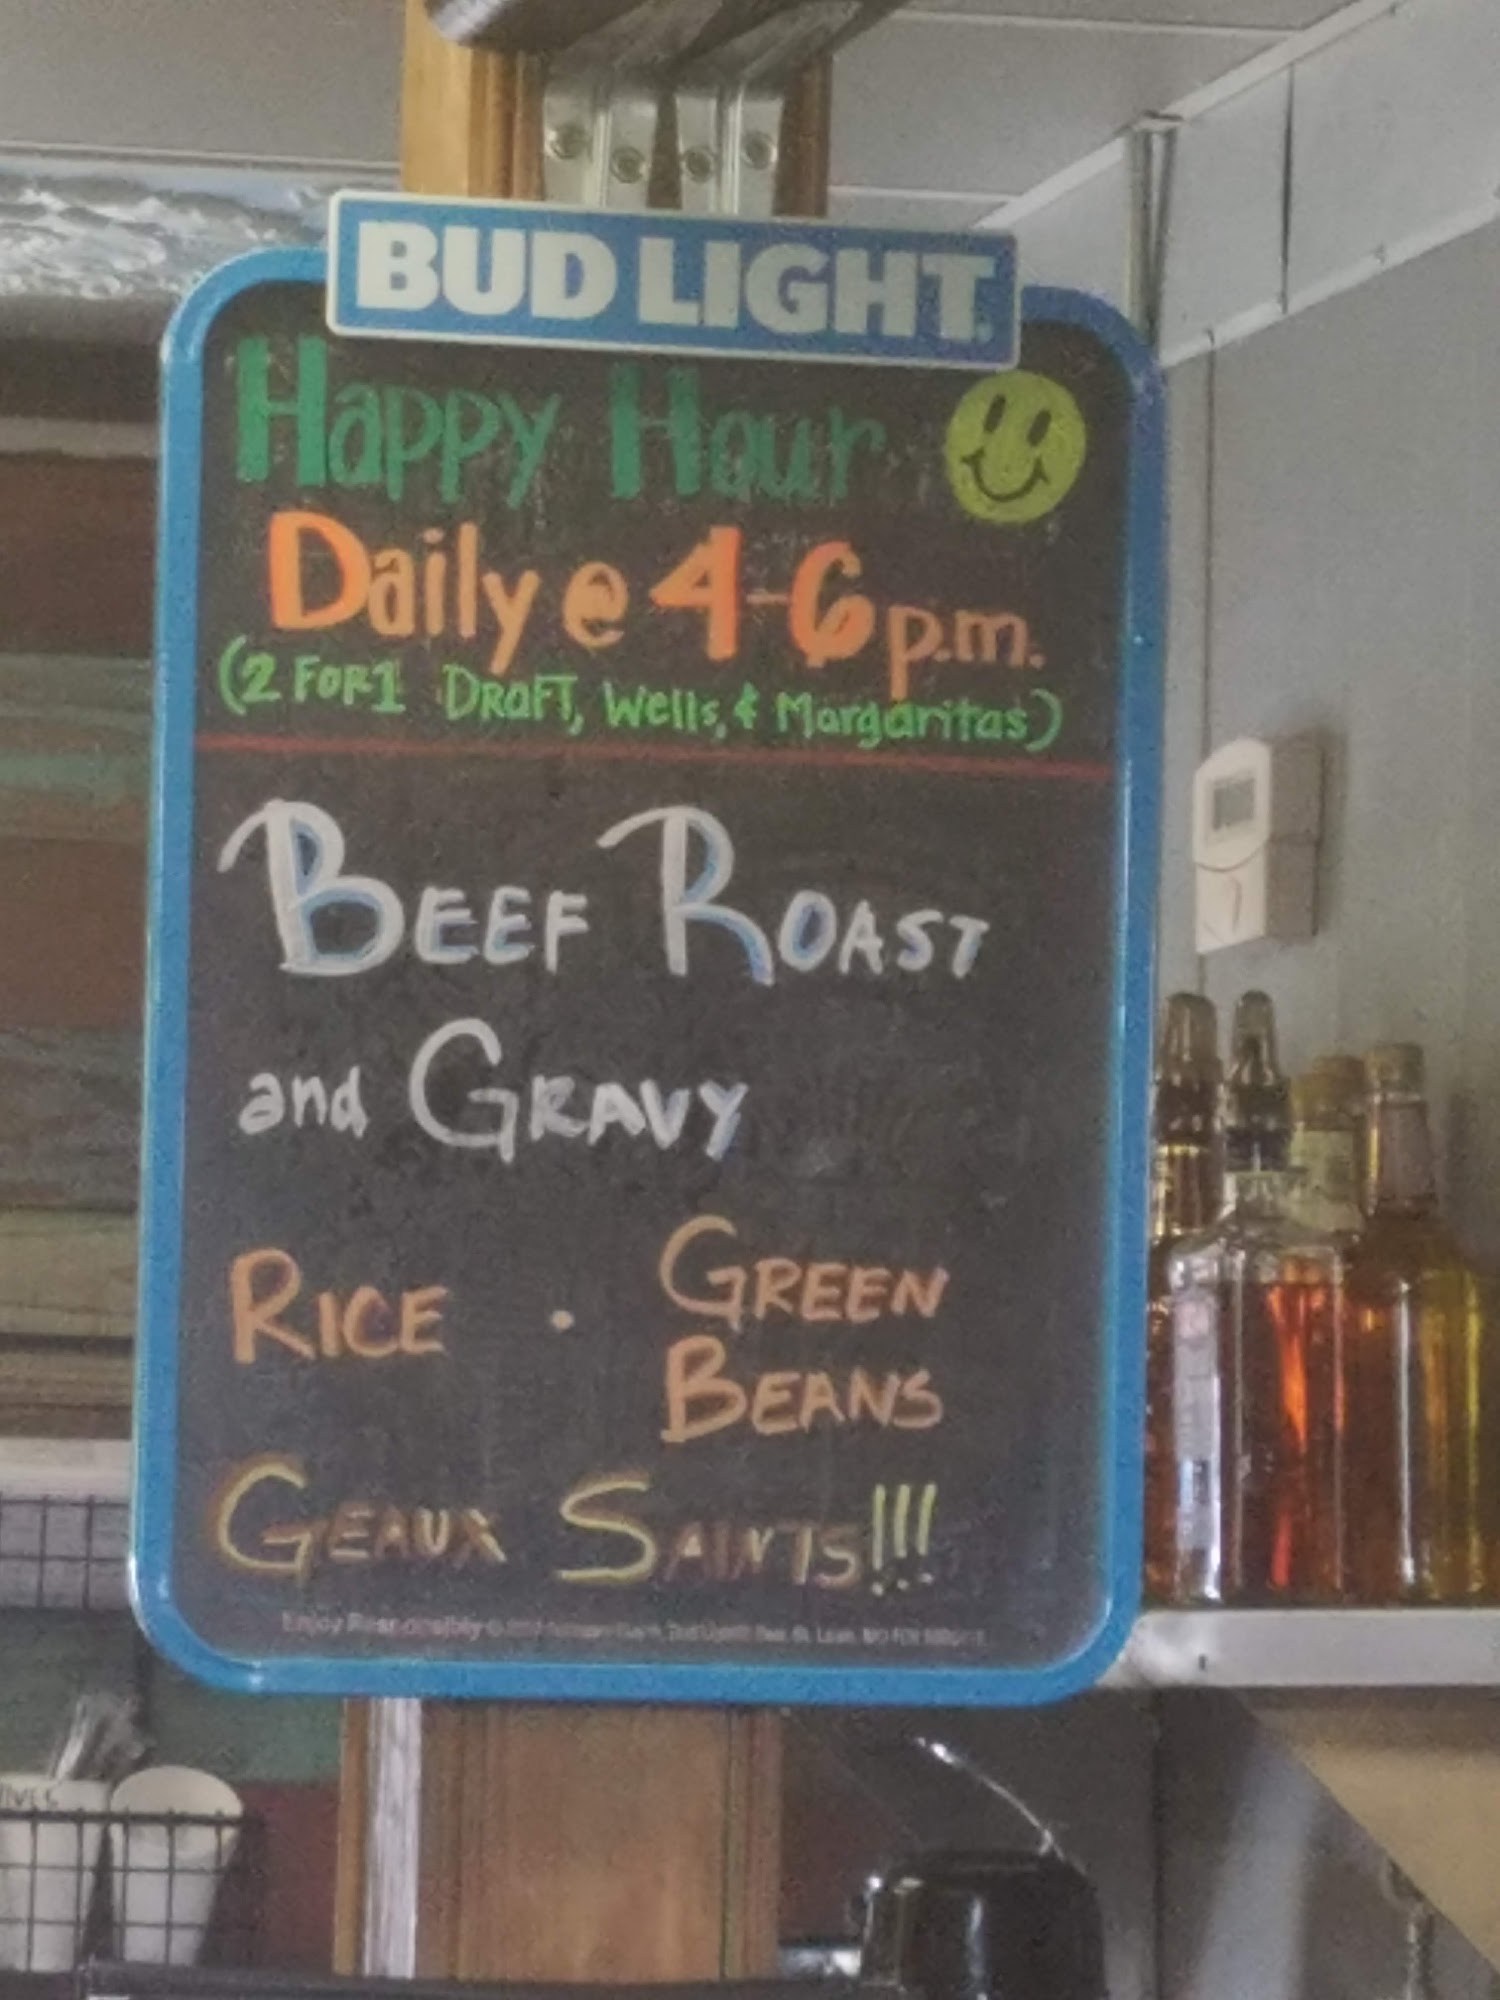 BUD LIGHT
Happy Hour
Daily @ 4-6 p.m.
(2 FOR 1 DRAFT, Wells, & Margaritas)
BEEF ROAST
and GRAVY
RICE · GREEN
BEANS
GEAUX SAINTS!!!
Enjoy Responsibly